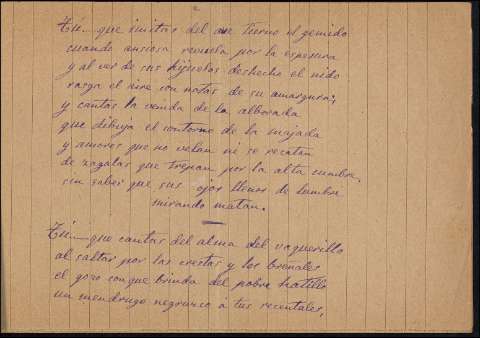 Tú... que imitas del ave tierno el gemido
cuando ansiosa revuela por la espesura
y al ver de sus hijuelos deshecho el nido
rasga el aire con notas de su amargura;
y cantas la venida de la alborada
que dibuja el contorno de la majada
y amores que no velan ni se recatan
de zagalas que trepan por la alta cumbre,
sin saber que sus ojos llenos de lumbre
mirando matan.
Tú... que cantas del alma del vaquerillo
al saltar por las crestas y los breñales
el gozo con que brinda del pobre hatillo
un mendrugo negruzco á tus recentales,